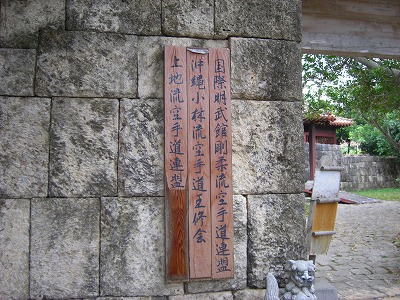 国際明武館剛柔流空手道連盟
沖縄小林流空手道王修会
上地流空手道連盟